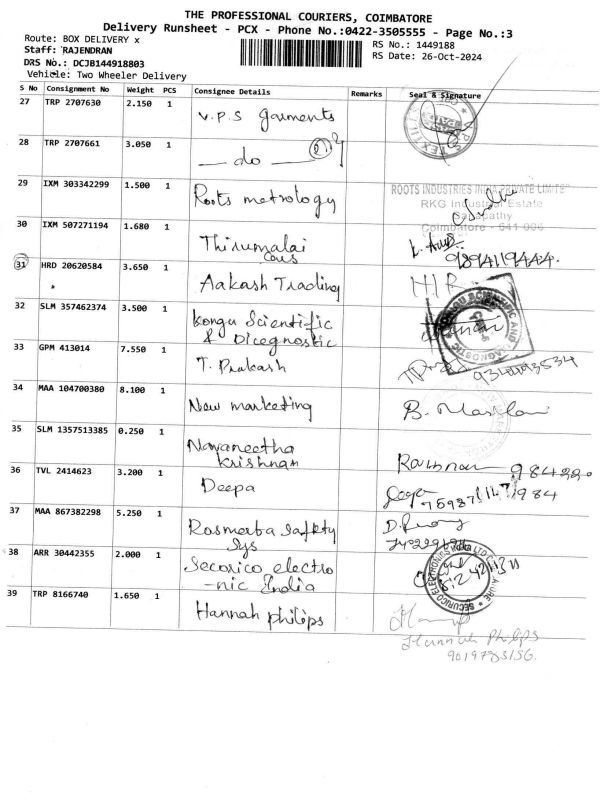 THE PROFESSIONAL COURIERS, COIMBATORE
Delivery Runsheet - PCX - Phone No.:0422-3505555 - Page No.:3
Route: BOX DELIVERY x
RS No.: 1449188
Staff: RAJENDRAN
RS Date: 26-Oct-2024
DRS No.: DCJB144918803
Vehicle: Two Wheeler Delivery
S No Consignment No Weight PCS Consignee Details Remarks Seal & Signature
27 TRP 2707630 2.150 1 V.P.S garments
28 TRP 2707661 3.050 1 — do —
29 IXM 303342299 1.500 1 Roots metrology
ROOTS INDUSTRIES INDIA PRIVATE LIMITED
RKG Industrial Estate
Ganapathy
Coimbatore - 641 006
30 IXM 507271194 1.680 1 Thirumalai
9894119444.
31 HRD 20620584 3.650 1 Aakash Trading
32 SLM 357462374 3.500 1 Kongu Scientific
& Dicegnostic
33 GPM 413014 7.550 1 T. Prakash
34 MAA 104700380 8.100 1 New marketing
35 SLM 1357513385 0.250 1 Navaneetha
Krishnan
36 TVL 2414623 3.200 1 Deepa
37 MAA 867382298 5.250 1 Rosmerba Safety
Sys
38 ARR 30442355 2.000 1 Secorico electro
-nic India
39 TRP 8166740 1.650 1 Hannah philips
Hannah Philips
9019783156.